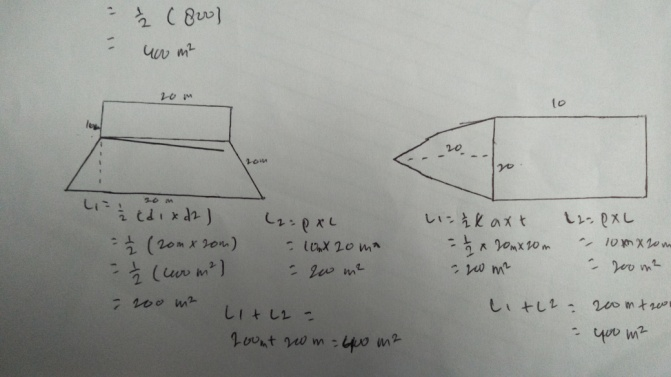 = 1/2 (800)
= 400 m²
20 m
10m
20m
20 m
L1 = 1/2 (d1 x d2)
= 1/2 (20m x 20m)
= 1/2 (400 m²)
= 200 m²
L2 = p x L
= 10m x 20 m
= 200 m²
L1 + L2 =
200m + 200 m = 400 m²
10
20
20
L1 = 1/2 x a x t
= 1/2 x 20m x 20m
= 200 m²
L2 = p x L
= 10m x 20m
= 200 m²
L1 + L2 = 200m + 200
= 400 m²